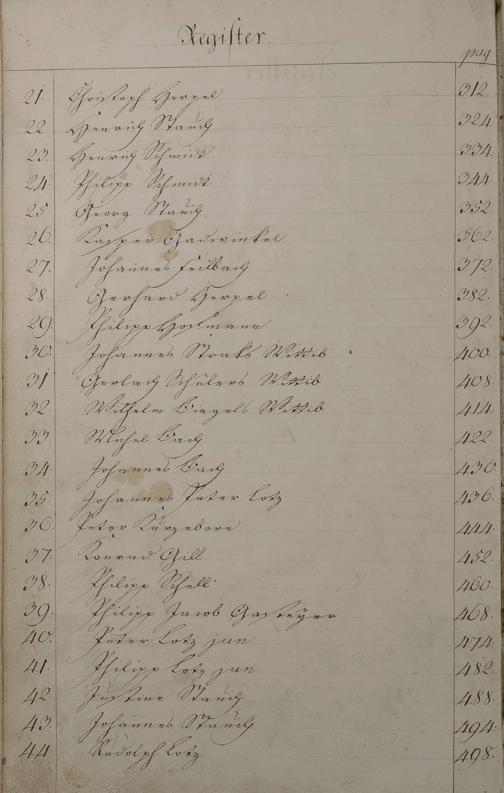 Register
pag
21. Christoph Herpel 312.
22 Henrich Stauch 324
23. Henrich Schmidt 334
24. Philipp Schmidt 344
25 Georg Stauch 352
26. Kasper 362.
27. Johannes Feilbach 372.
28 Gerhard Herpel 382.
29. Philipp Hofmann 392.
30. Johannes Straks Wittib 400.
31 Gerlach Schülers Wittib 408.
32. Wilhelm Wittib 414.
33 Michel Bach 422.
34. Johannes Bach 430
35 Johannes Peter Lotz 436.
36. Peter Kurzeborn 444.
37. Konrad Gill 452.
38. Philipp Schell 460.
39. Philipp Jacob 468.
40. Peter Lotz jun. 474.
41. Philipp Lotz jun 482.
42 Justine Stauch 488.
43. Johannes Stauch 494.
44 Rudolph Lotz 498.